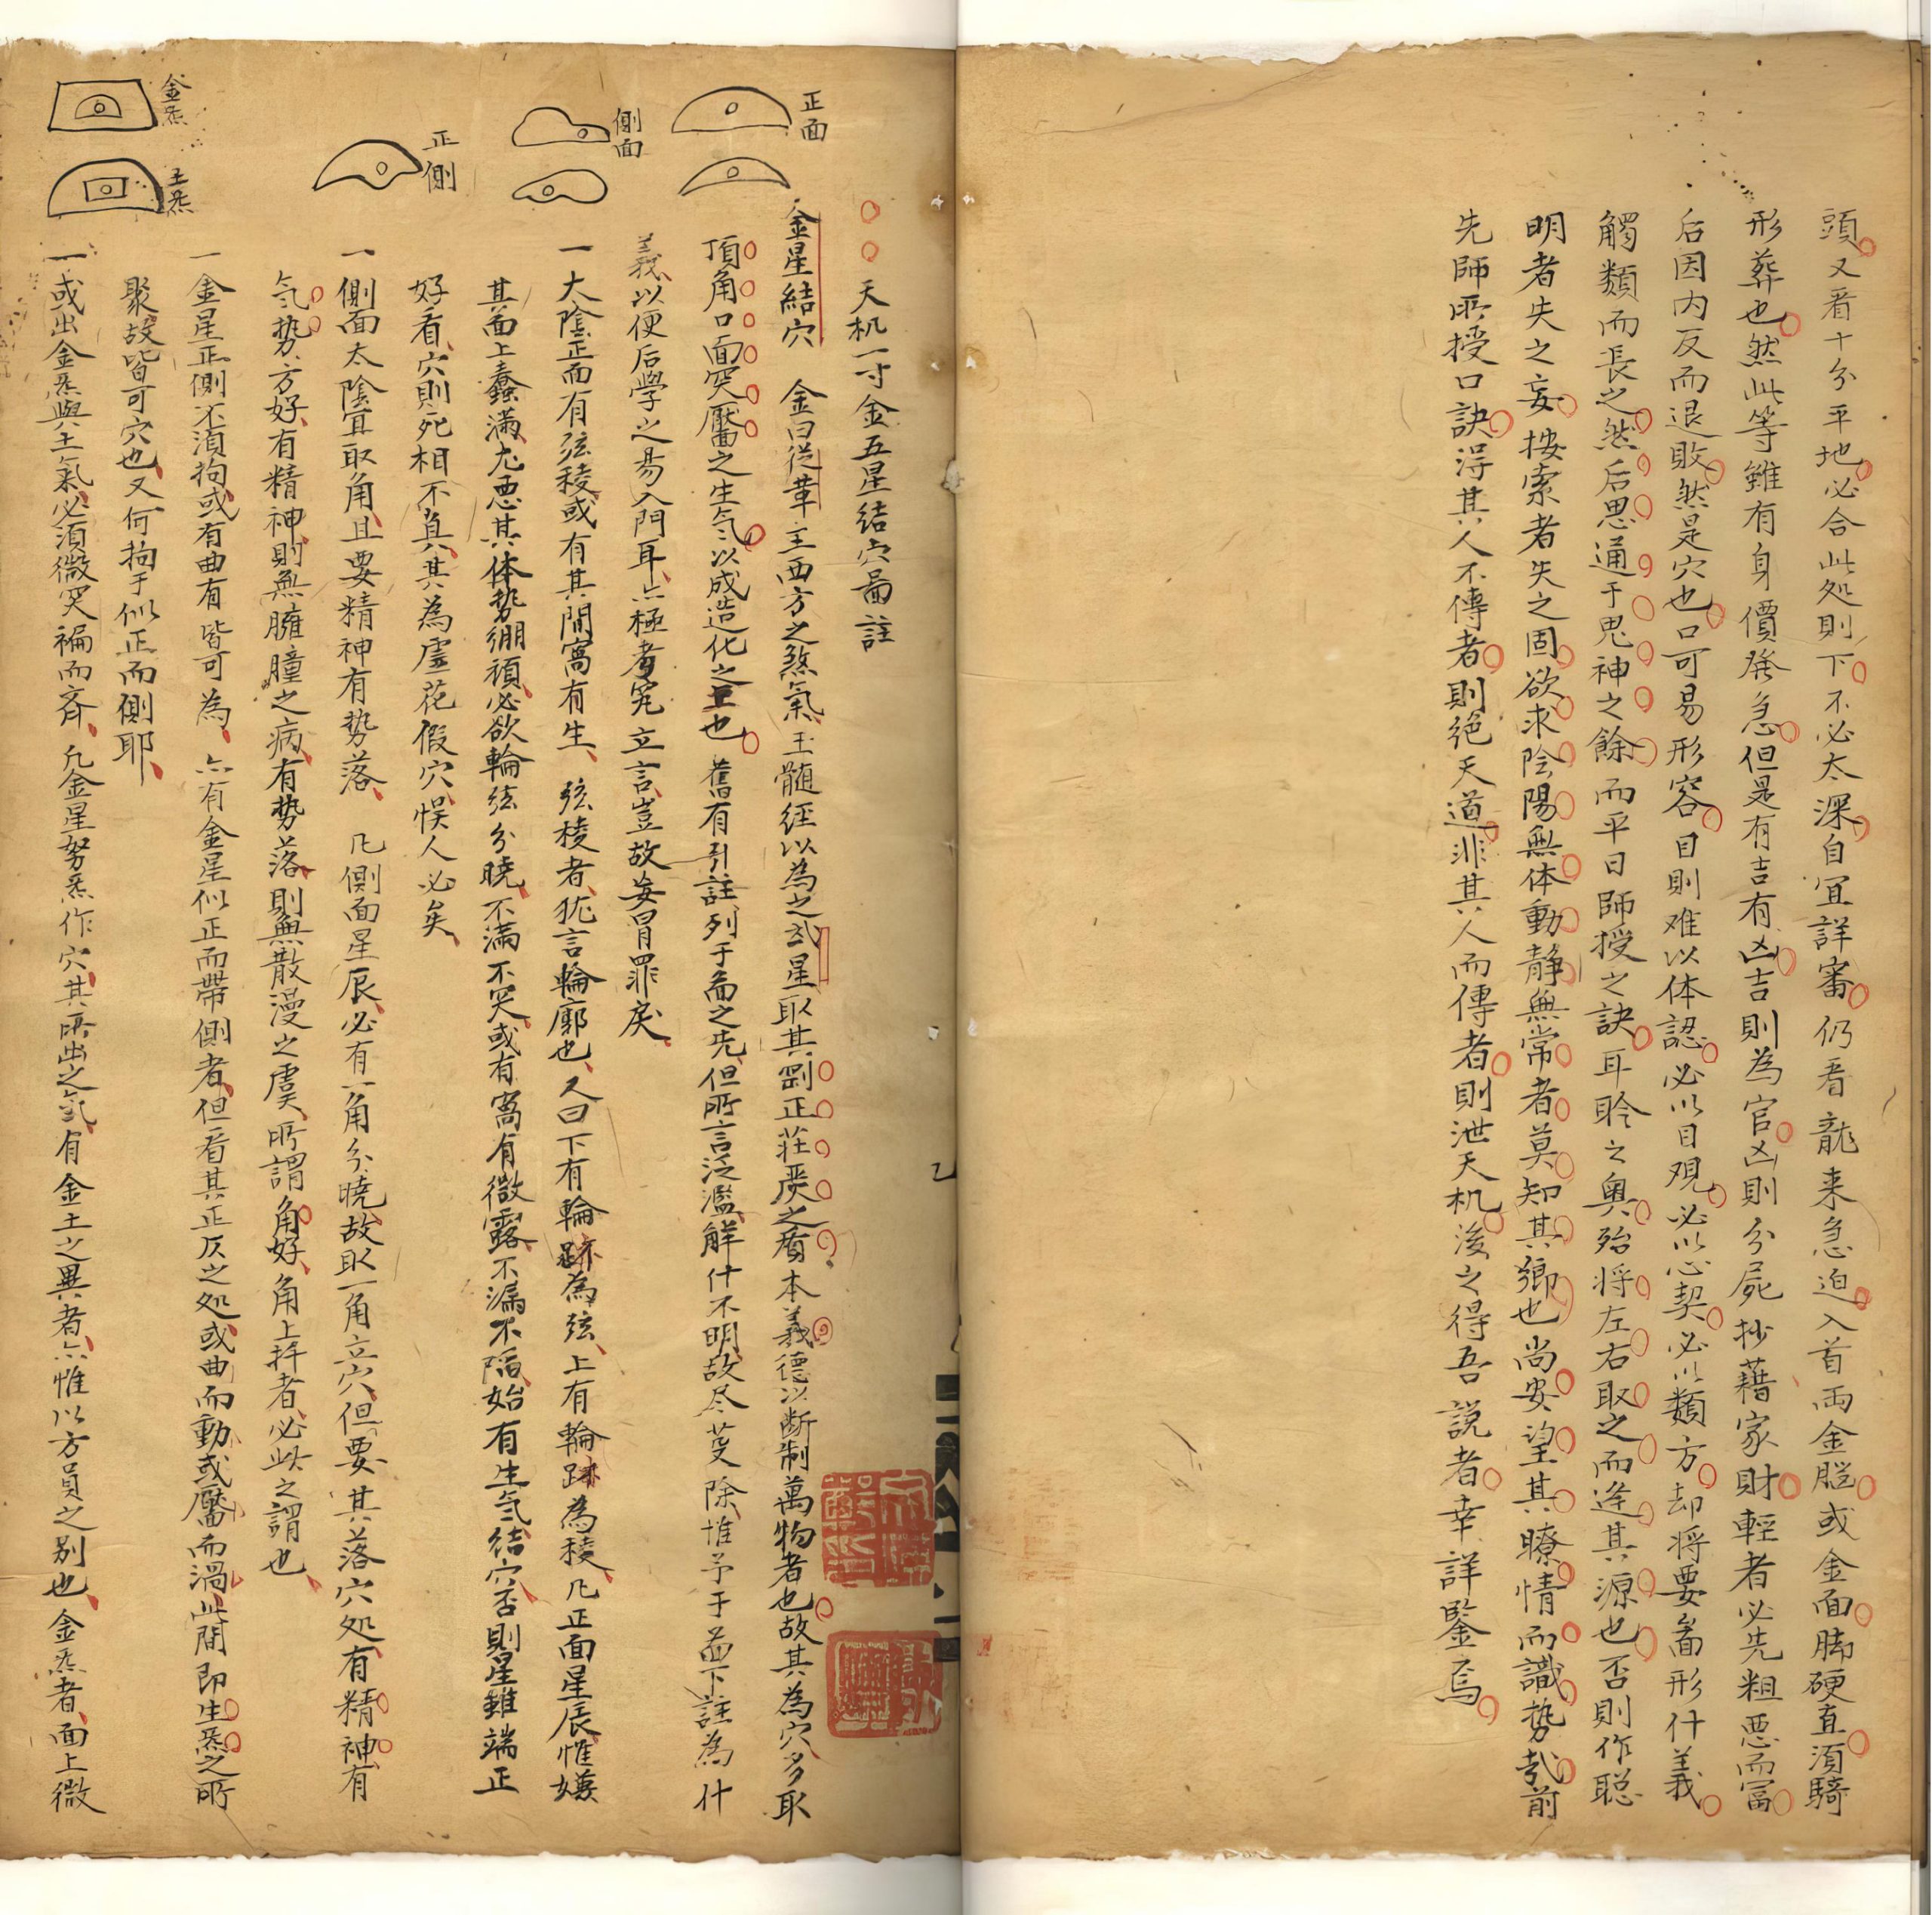 頭又看十分平地必合此処則下不必太深自宜詳審仍看龍来急迫入首両金脳或金面脚硬直須騎
形葬也然此等雖有身價發急但是有吉有凶吉則為官凶則分屍抄藉家財輕者必先粗悪而冨
后因内反而退敗然是穴也口可易形容目則难以体認必以目观必以心契必以類方却将要畣形什義
觸類而長之然后思通于鬼神之餘而平日師授之訣耳聆之奥殆将左右取之而逢其源也否則作聪
明者失之妄按索者失之固欲求陰陽無体動静無常者莫知其鄉也尚安望其瞭情而識势哉前
先師所授口訣浔其人不傳者則絶天道非其人而傳者則泄天机後之得吾說者幸詳鑒焉
天机一寸金五星結穴畣註
金星結穴 金曰從革主西方之煞氣玉髄經以為之武星取其剛正荘嚴之看本義德以断制萬物者也故其為穴多取
頂角口面突靨之生気以成造化之主也 舊有引註列于畣之先但所言泛濫解什不明故尽芟除惟予于畣下註為什
義以便后學之易入門耳亦極考究立言豈故妄冐罪戾
一大陰正面有弦稜或有其間窩有生 弦棱者犹言輪廓也又曰下有輪跡為弦上有輪跡為稜凡正面星辰惟嫌
其面上蠢满尤悪其体势绷頑必欲輪弦分曉不满不突或有窩有微露不漏不陷始有生気結穴否則星雖端正
好看穴則死相不真其為虚花假穴悮人必矣
一側面太陰宜取角且要精神有势落 凡側面星辰必有一角分曉故取一角立穴但要其落穴処有精神有
気势方好有精神則無臃腫之病有势落則無散漫之虞所謂角好角上拜者必此之謂也
一金星正側不須拘或有曲有皆可為 亦有金星似正而帶側者但看其正仄之処或曲而動或靨而渦此間即生炁之所
聚故皆可穴也又何拘于似正而側耶
一或出金炁與土氣必須微突褊而斉 凢金星努炁作穴其所出之気有金土之異者亦惟以方員之別也金炁者面上微
正面
側面
正側
金炁
土炁